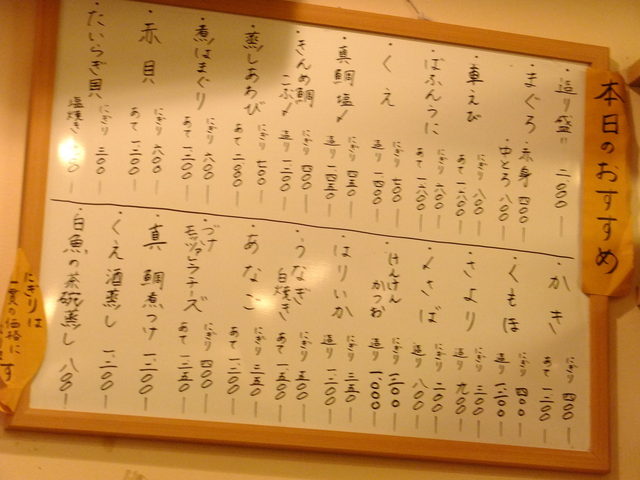 本日のおすすめ
・造り盛 二、八〇〇
・まぐろ ・赤身 四〇〇
・中とろ 八〇〇
・車えび にぎり 八〇〇
あて 一、六〇〇
・ばふんうに にぎり 六〇〇
あて 一、八〇〇
・くえ にぎり 七〇〇
造り 一、四〇〇
・真鯛塩〆 にぎり 四五〇
造り 一、三五〇
・きんめ鯛こぶ〆 にぎり 四〇〇
造り 一、二〇〇
・蒸しあわび にぎり 七〇〇
あて 二、八〇〇
・煮はまぐり にぎり 八〇〇
あて 一、二〇〇
・赤貝 にぎり 六〇〇
あて 一、二〇〇
・たいらぎ貝 にぎり 三〇〇
塩焼き
・かき にぎり 四〇〇
あて 一、二〇〇
・くもほ にぎり 四〇〇
造り 一、二〇〇
・さより にぎり 三〇〇
造り 九〇〇
・〆さば にぎり 二〇〇
造り 八〇〇
・けんけんかつお にぎり 二〇〇
造り 一、〇〇〇
・はりいか にぎり 三五〇
造り 一、二〇〇
・うなぎ白焼き にぎり 五〇〇
あて 一、五〇〇
・あなご にぎり 三五〇
あて 一、二〇〇
・づけモッツァレラチーズ にぎり 四〇〇
あて 一、二五〇
・真鯛煮つけ 一、二〇〇
・くえ酒蒸し 一、二〇〇
・白魚の茶碗蒸し 八〇〇
にぎりは
一貫の価格に
す